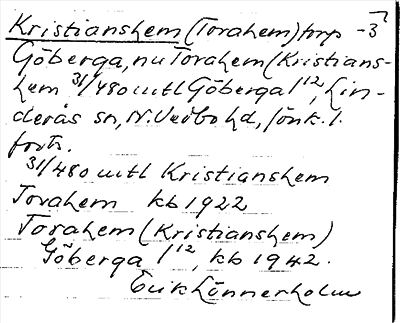 Kristianshem (Torahem) torp -3
Göberga, nu Torahem (Kristians-
hem 31/480 mtl Göberga 1 12, Lin-
derås sn, N. Vedbo hd, Jönk. l.
forts.
31/480 mtl Kristianshem
Torahem kb 1922
Torahem (Kristianshem)
Göberga 1 12, kb 1942.
Erik Lönnerholm